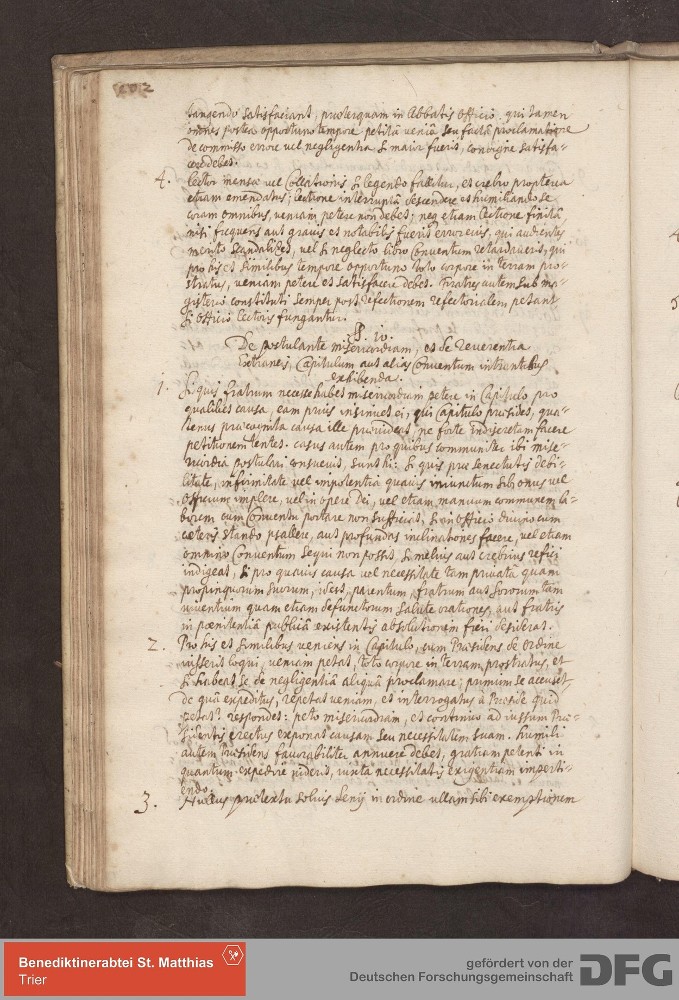 202
tangendo satisfaciant, praeterquam in Abbatis Officio. qui tamen
omnes postea opportuno tempore petitâ veniâ seu factâ proclamatione
de commisso errore vel negligentia si maior fuerit, condigne satisfa-
cere debet.
4. Lector mensae vel Collationis si legendo fallitur, et crebro propterea
etiam emendatus; lectione interruptâ descendere et humiliando se
coram omnibus, veniam petere non debet; neq etiam lectione finitâ,
nisi frequens aut gravis et notabilis fuerit error eius, qui audientes
merito scandalizet, vel si neglecto libro Conventum retardaverit, qui
pro his et similibus tempore opportuno toto corpore in terram pro-
stratus, veniam petere et satisfacere debet. Fratres autem sub ma-
gisterio constituti semper post refectionem refectorialem, petant
si officio lectoris fungantur.
§. iv.
De postulante misericordiam, et de reverentia
Extraneis, Capitulum aut alias Conventum intrantibus
exhibenda.
1. Si quis fratrum necesse habet misericordiam petere in Capitulo pro
qualibet causa, eam prius insinuet ei, qui Capitulo praesidet, qua-
tenus praecognita causa ille provideat, ne forte indiscretam facere
petitionem tentet. casus autem pro quibus communiter ibi mise-
ricordia postulari consuevit, sunt hi: si quis prae senectutis debi-
litate, infirmitate vel impotentia quavis iniunctum sibi onus vel
officium implere, vel in opere Dei, vel etiam manuum communem la-
borem cum Conventu portare non sufficit, si in officio divino cum
caeteris stando psallere, aut profundas inclinationes facere, vel etiam
omnino Conventum sequi non possit, si melius aut crebrius refici
indigeat, si pro quavis causa vel necessitate tam privata quam
propinquorum suorum, idest, parentum, fratrum aut sororum tam
viventium quam etiam defunctorum salute orationes, aut fratris
in poenitentiâ publicâ existentis absolutionem fieri desiderat.
2. Pro his et similibus veniens in Capitulo, cum Praesidens de ordine
iusserit loqui, veniam petat, toto corpore in terram prostratus, et
si habeat se de negligentiâ aliquâ proclamare; primum se accuset,
de quâ expeditus, repetat veniam, et interrogatus à Praeside quid
petat? respondet: peto misericordiam, et continuo ad iussum Prae-
sidentis erectus exponat causam seu necessitatem suam. humili
autem Praesidens favorabiliter annuere debet, gratiam petenti in
quantum expedire viderit, iuxta necessitatis exigentiam imperti-
endo.
3. Nullus praetextu solius senij in ordine ullam sibi exemptionem
Benediktinerabtei St. Matthias
Trier
gefördert von der
Deutschen Forschungsgemeinschaft
DFG